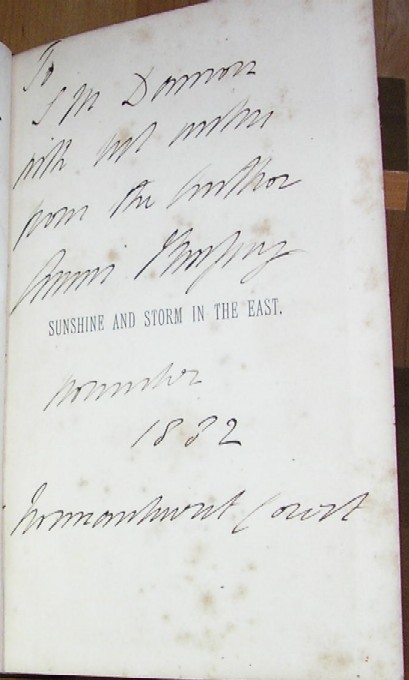 To
S M Damon
with best wishes
from the Author
Annie Brassey
SUNSHINE AND STORM IN THE EAST.
November
1882
Normanhurst Court